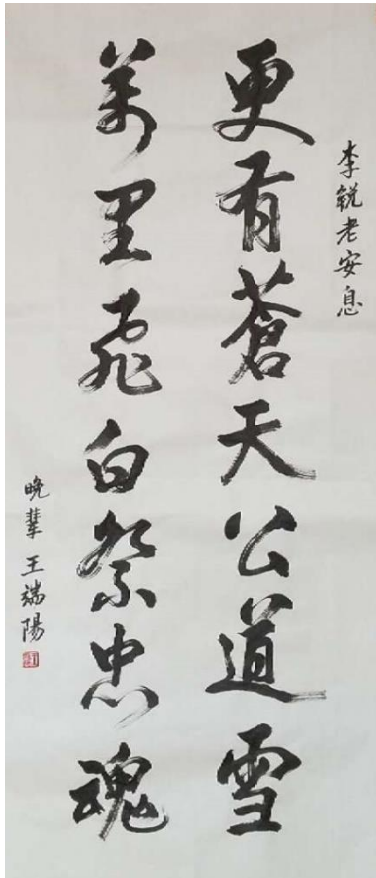 李銳老安息
更有蒼天公道雪
萬里飛白祭忠魂
晚輩王端陽